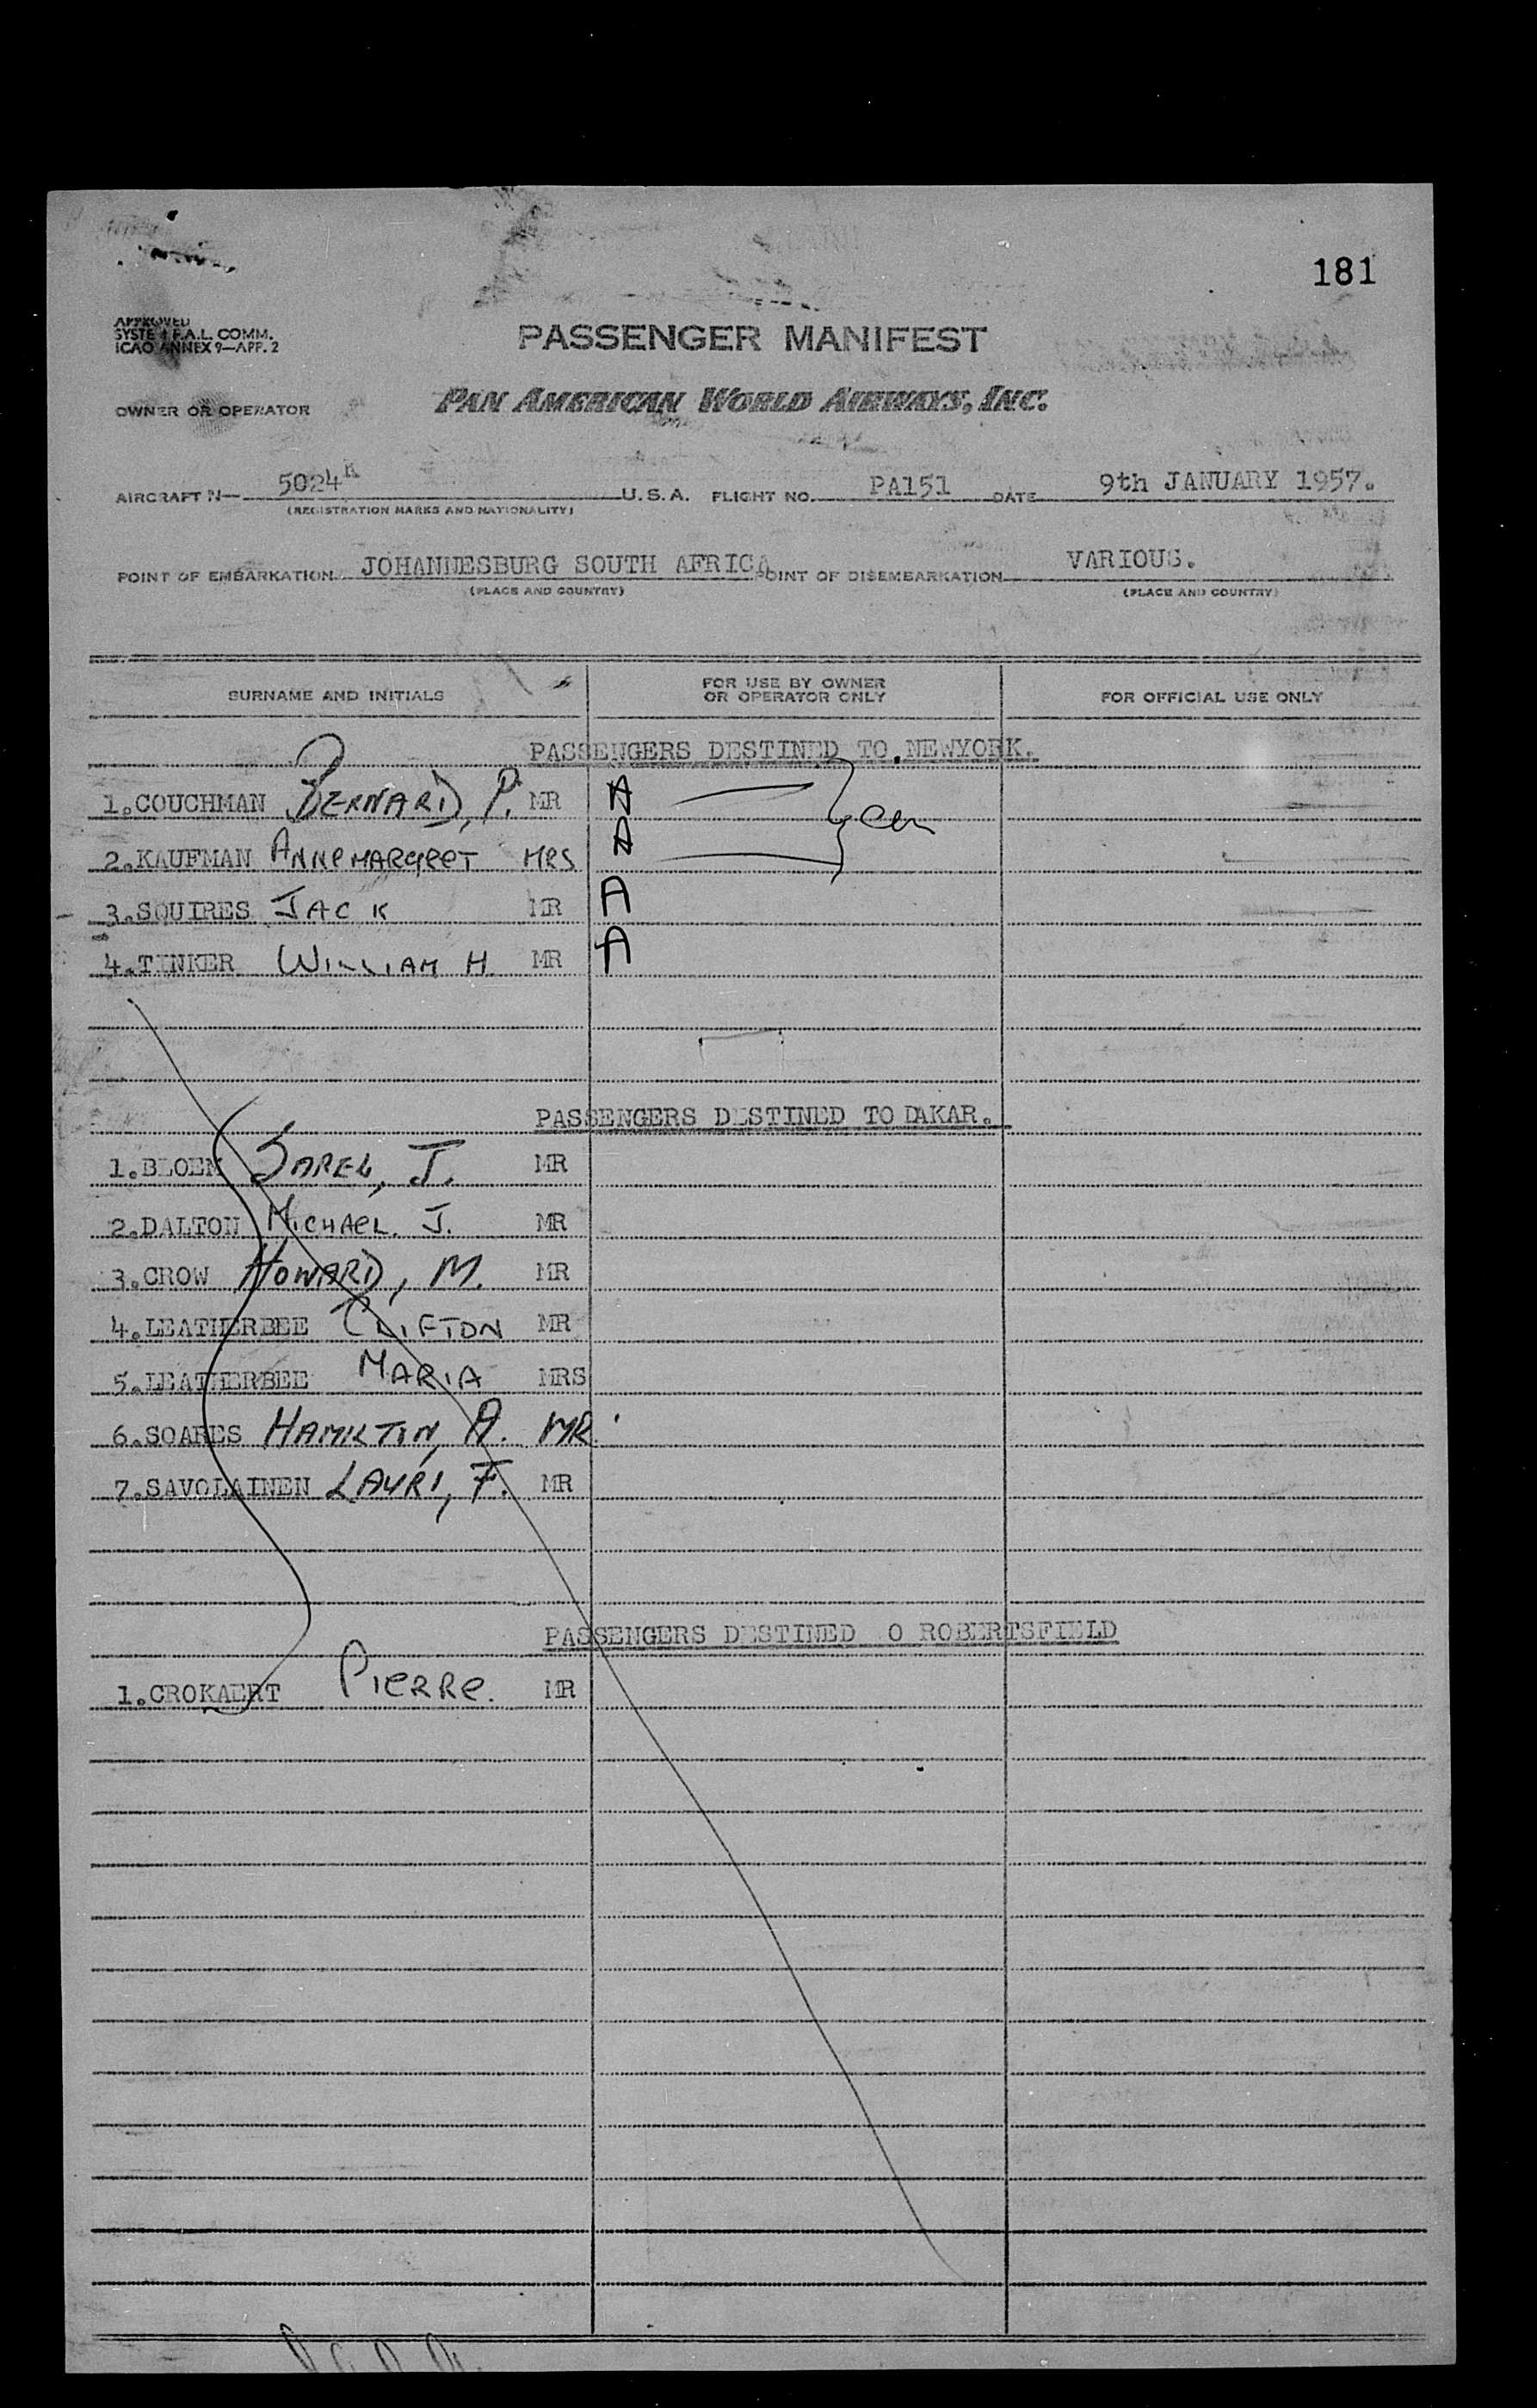 181
APPROVED
SYSTEM F.A.L. COMM.
ICAO ANNEX 9—APP. 2
PASSENGER MANIFEST
OWNER OR OPERATOR PAN AMERICAN WORLD AIRWAYS, INC.
AIRCRAFT N— 5024K U.S.A. FLIGHT NO. PA151 DATE 9th JANUARY 1957.
(REGISTRATION MARKS AND NATIONALITY)
POINT OF EMBARKATION JOHANNESBURG SOUTH AFRICA POINT OF DISEMBARKATION VARIOUS.
(PLACE AND COUNTRY) (PLACE AND COUNTRY)
SURNAME AND INITIALS FOR USE BY OWNER OR OPERATOR ONLY FOR OFFICIAL USE ONLY
PASSENGERS DESTINED TO.NEWYORK.
1.COUCHMAN BERNARD, P. MR A
2.KAUFMAN ANNEMARGRET MRS A
3.SQUIRES JACK MR A
4.TINKER WILLIAM H. MR A
PASSENGERS DESTINED TO DAKAR.
1.BLOEM SAREL, J. MR
2.DALTON MICHAEL. J. MR
3.CROW HOWARD, M. MR
4.LEATHERBEE CLIFTON MR
5.LEATHERBEE MARIA MRS
6.SOARES HAMILTON, A. MR.
7.SAVOLAINEN LAURI, F. MR
PASSENGERS DESTINED O ROBERTSFIELD
1.CROKAERT PIERRE. MR